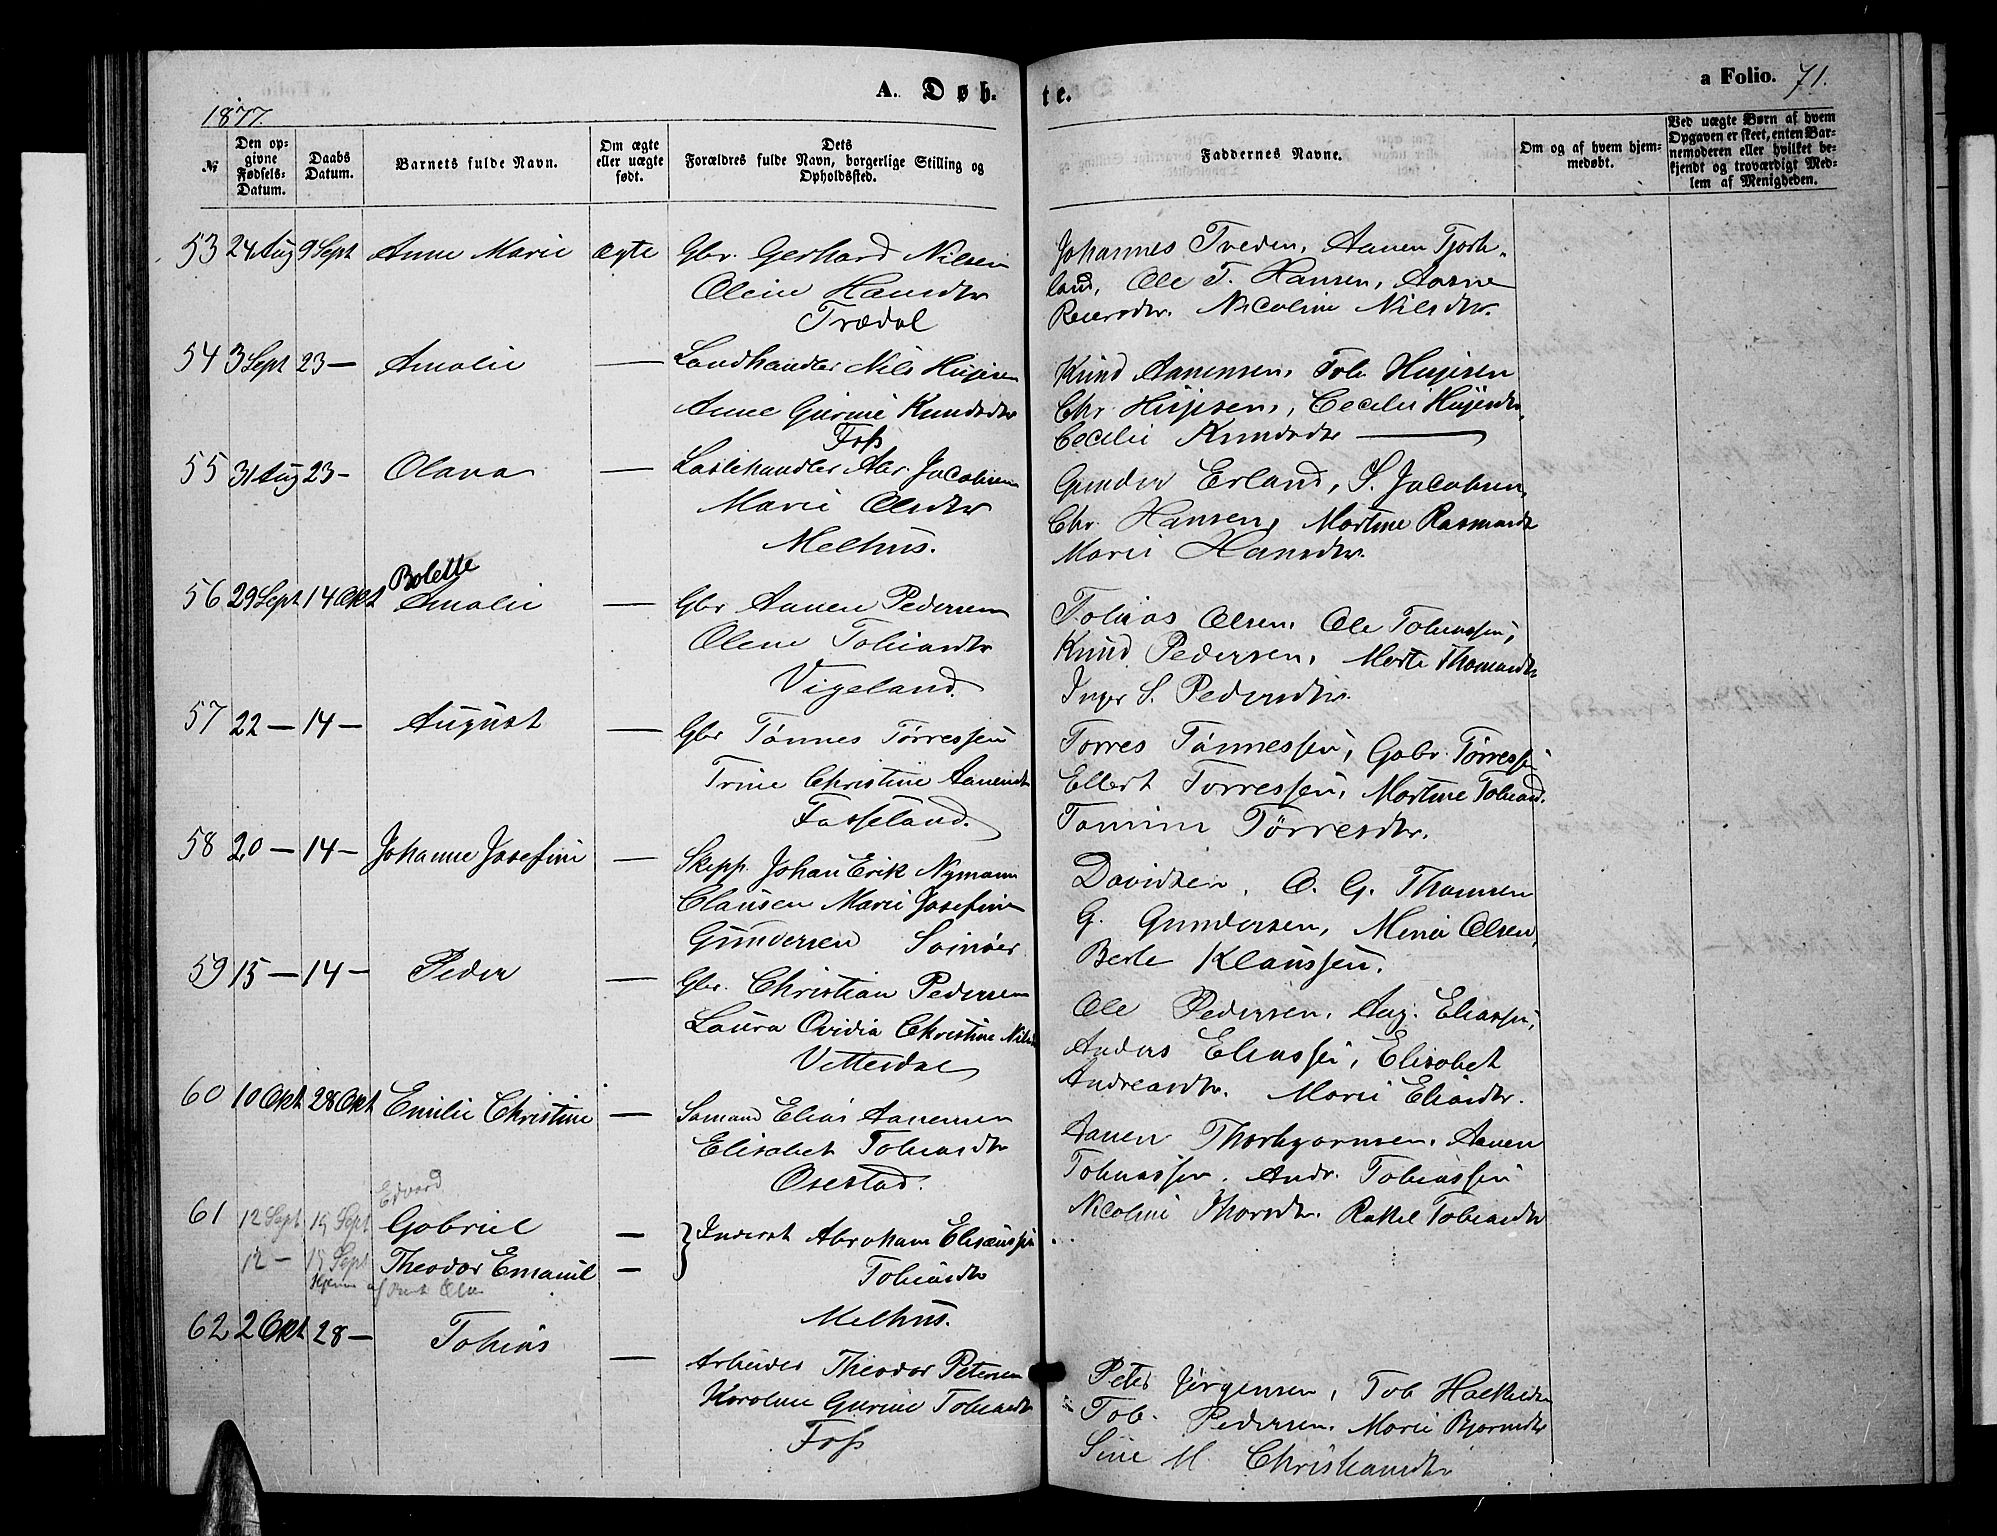 A. Døb-
te.
a Folio. 71.
1877.
№
Den op-
givne
Fødsels-
Datum.
Daabs
Datum.
Barnets fulde Navn.
Om ægte
eller uægte
født.
Dets
Forældres fulde Navn, borgerlige Stilling og
Opholdssted.
Faddernes Navne.
Om og af hvem hjem-
medøbt.
Ved uægte Børn af hvem
Opgaven er skeet, enten Bar-
nemoderen eller hvilket be-
kjendt og troværdigt Med-
lem af Menigheden.
53 24 Aug 9 Sept Anne Marie ægte Gbr. Gerhard Nilsen
Oline Hansdtr
Trædal
Johannes Tveden, Aanen Tjorh-
land, Ole T. Hansen, Aasne
Reiersdtr. Nicoline Nilsdtr.
54 3 Sept 23 — Amalie — Landhandler Nils
Anne Gurine Knudsdtr
Foss
Knud Aanensen, Tob.
Chr. Cecilie
Cecilie Knudsdtr —
55 31 Aug 23 - Olava — Abr. Jacobsen
Marie Olsdtr
Melhus.
Gunder Erland, S. Jacobsen,
Chr. Hansen, Martine Rasmusdt
Marie Hansdtr.
56 29 Sept 14 Okt Bolette
Amalie — Gbr Aanen Pedersen
Olene Tobiasdtr
Vigeland.
Tobias Olsen, Ole Tobiassen,
Knud Pedersen, Marte Thomasdtr
Inger S. Pedersdtr.
57 22 — 14 — August — Gbr Tønnes Tørressen
Trine Christine Aanensdtr
Fasseland.
Torres Tønnessen, Gabr. Tørressen
Ellert Torressen, Martine Tobiasd.
Tørresdtr.
58 20 — 14 — Johanne Josefine — Skipp. Johan Erik Nymann
Clausen Marie Josefine
Gundersen Svinøer
Davidsen, O. G. Thomsen
G. Gundersen, Mina Olsen,
Berte Klaussen.
59 15 — 14 — Peder — Gbr. Christian Pedersen
Laura Ovidia Christine Nilsdt
Vetterdal
Ole Pedersen, Aug. Eliassen,
Anders Eliassen, Elisabet
Andreasdtr. Marie Eliasdtr.
60 10 Okt 28 Okt Emilie Christine — Sømand Elias Aanensen
Elisabet Tobiasdtr
Osestad.
Aanen Thorbjørnsen, Aanen
Tobiassen, Andr. Tobiassen
Nicoline Thorsdtr. Rakel Tobiasdtr
61 12 Sept 15 Sept Edvard
Gabriel — Inderst Abraham Elisæussen
12 — 15 Sept Theodor Emanuel — Tobiasdtr
Hjemme af Olsen
Melhus.
62 2 Okt 28 — Tobias — Arbeider Theodor Petersen
Karoline Gurine Tobiasdtr
Foss
Peter Jørgensen, Tob
Tob. Pedersen, Marie Bjørnsdtr
Sine M. Christiansdtr